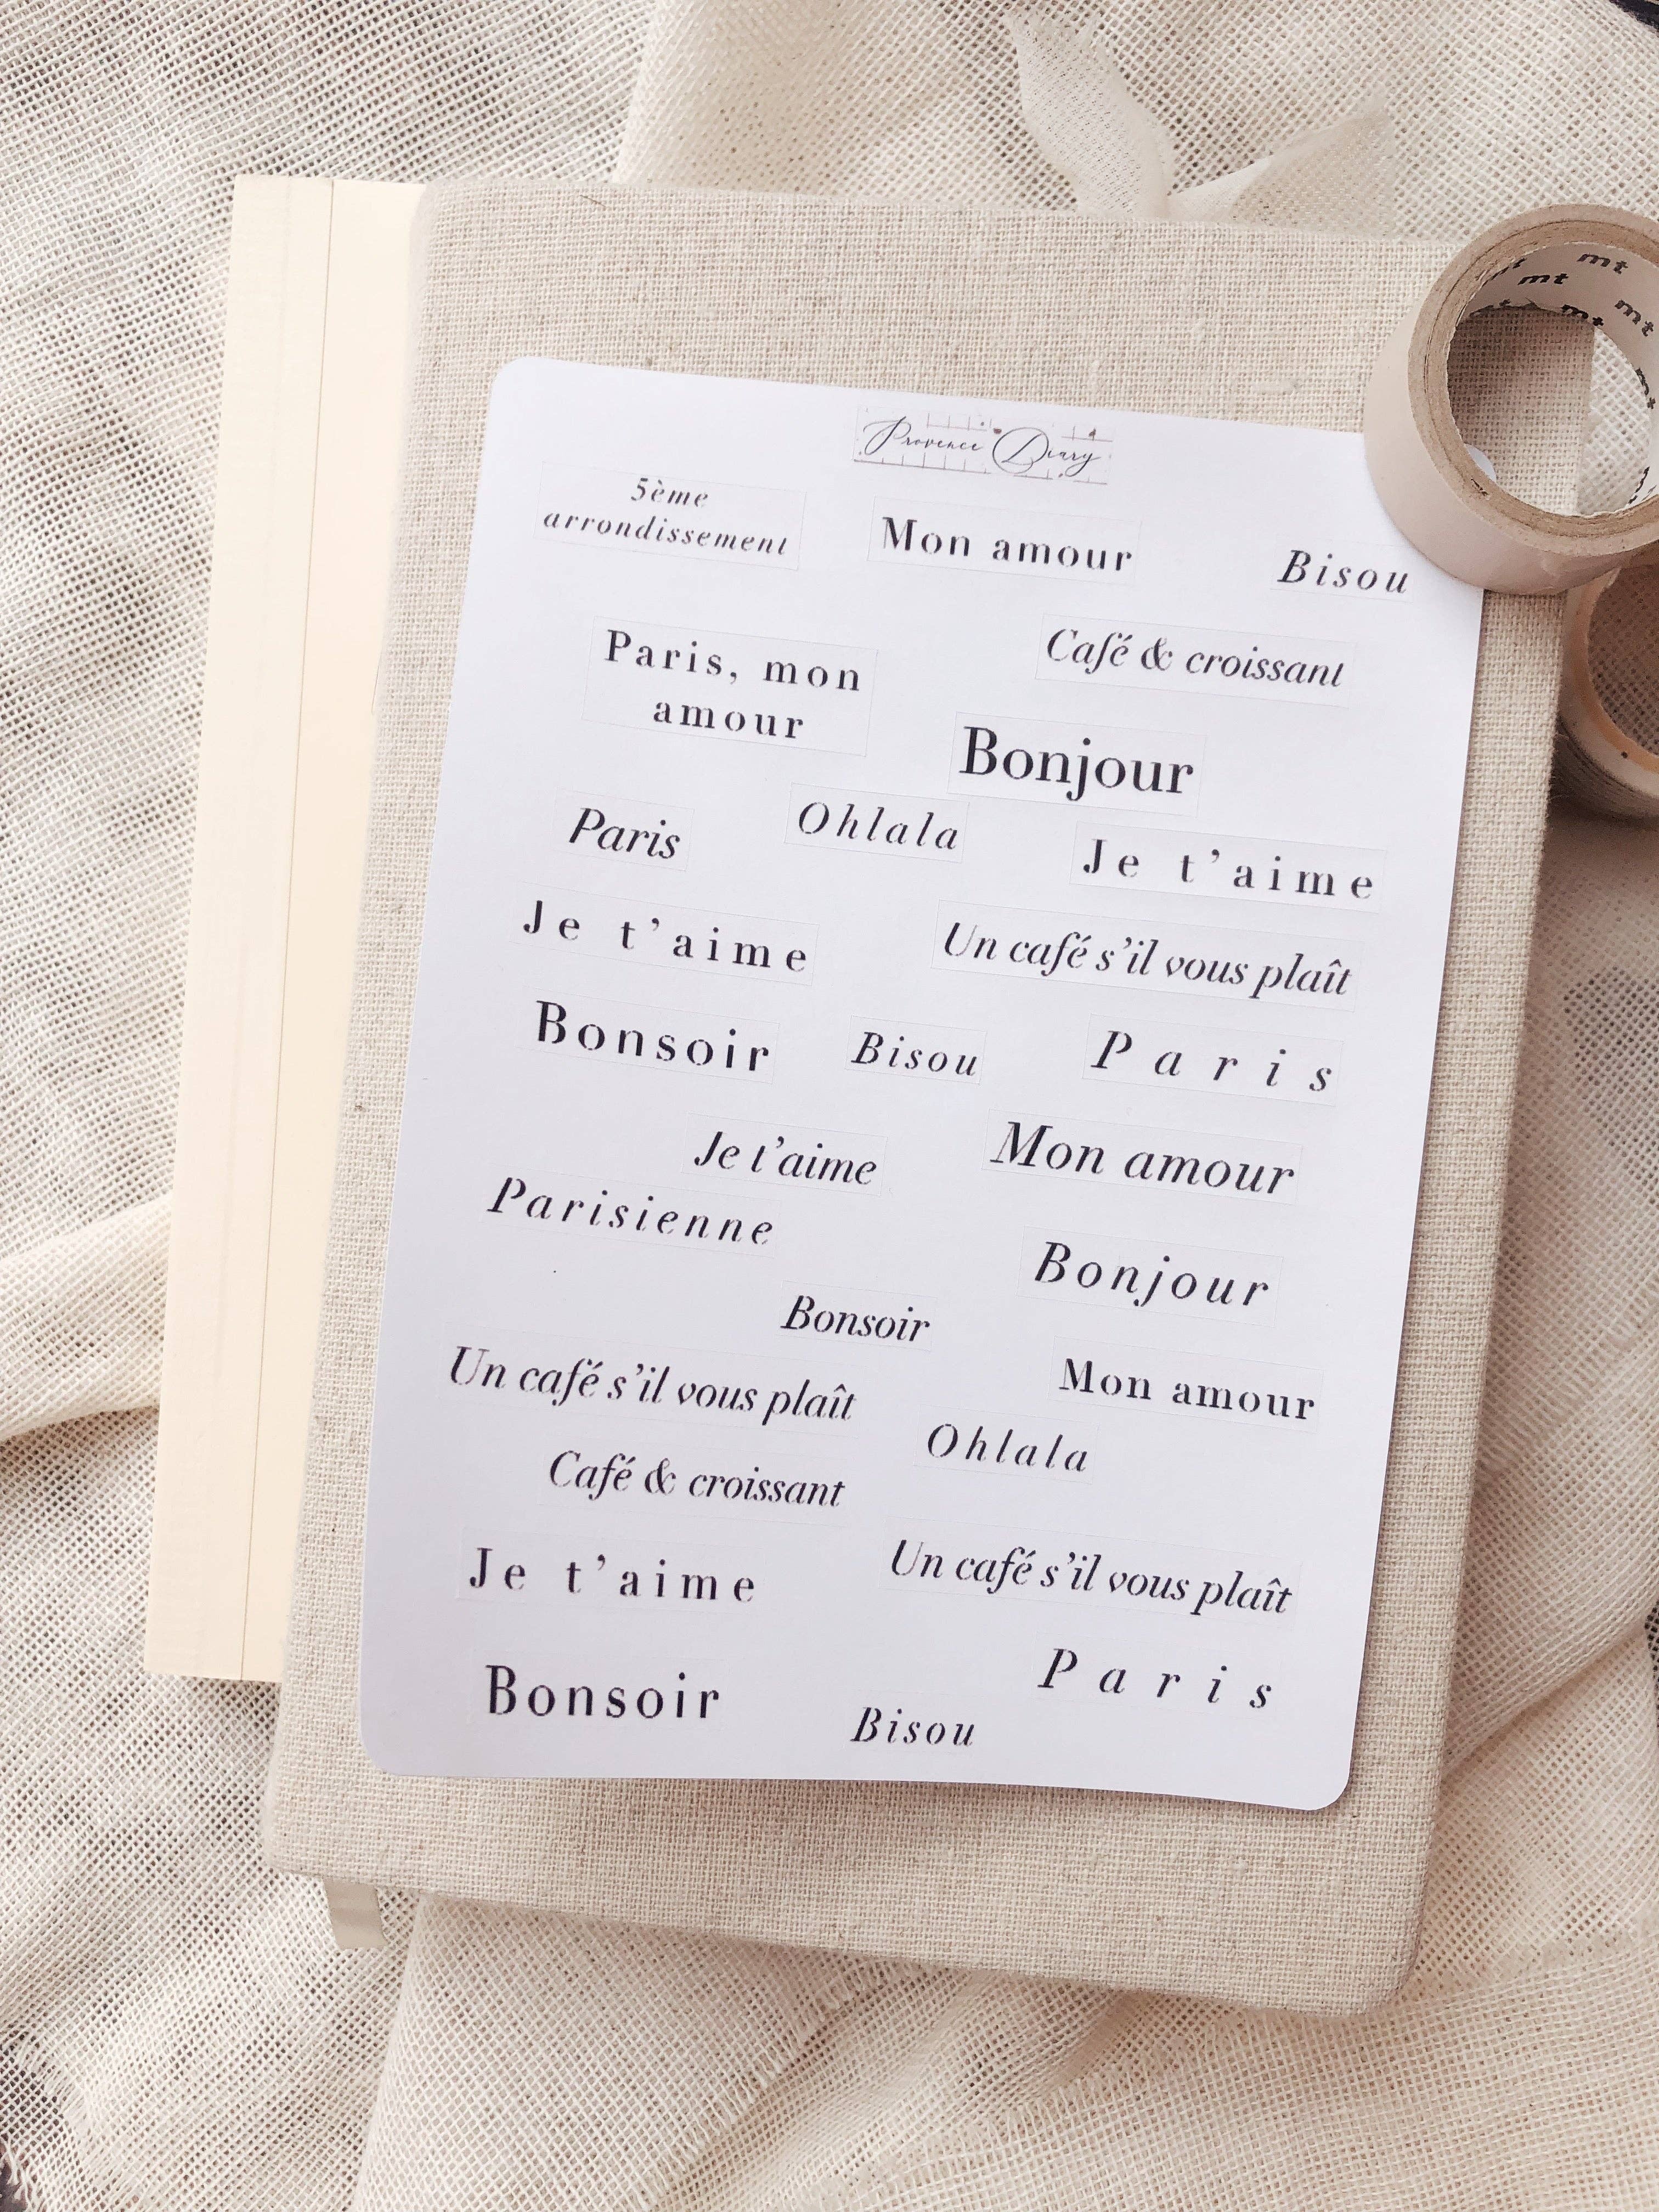 Provence Diary
5ème
arrondissement
Mon amour
Bisou
Paris, mon
amour
Café & croissant
Bonjour
Paris
Ohlala
Je t’aime
Je t’aime
Un café s’il vous plaît
Bonsoir
Bisou
Paris
Je t’aime
Mon amour
Parisienne
Bonjour
Bonsoir
Un café s’il vous plaît
Mon amour
Ohlala
Café & croissant
Je t’aime
Un café s’il vous plaît
Bonsoir
Bisou
Paris
mt
mt
mt
mt